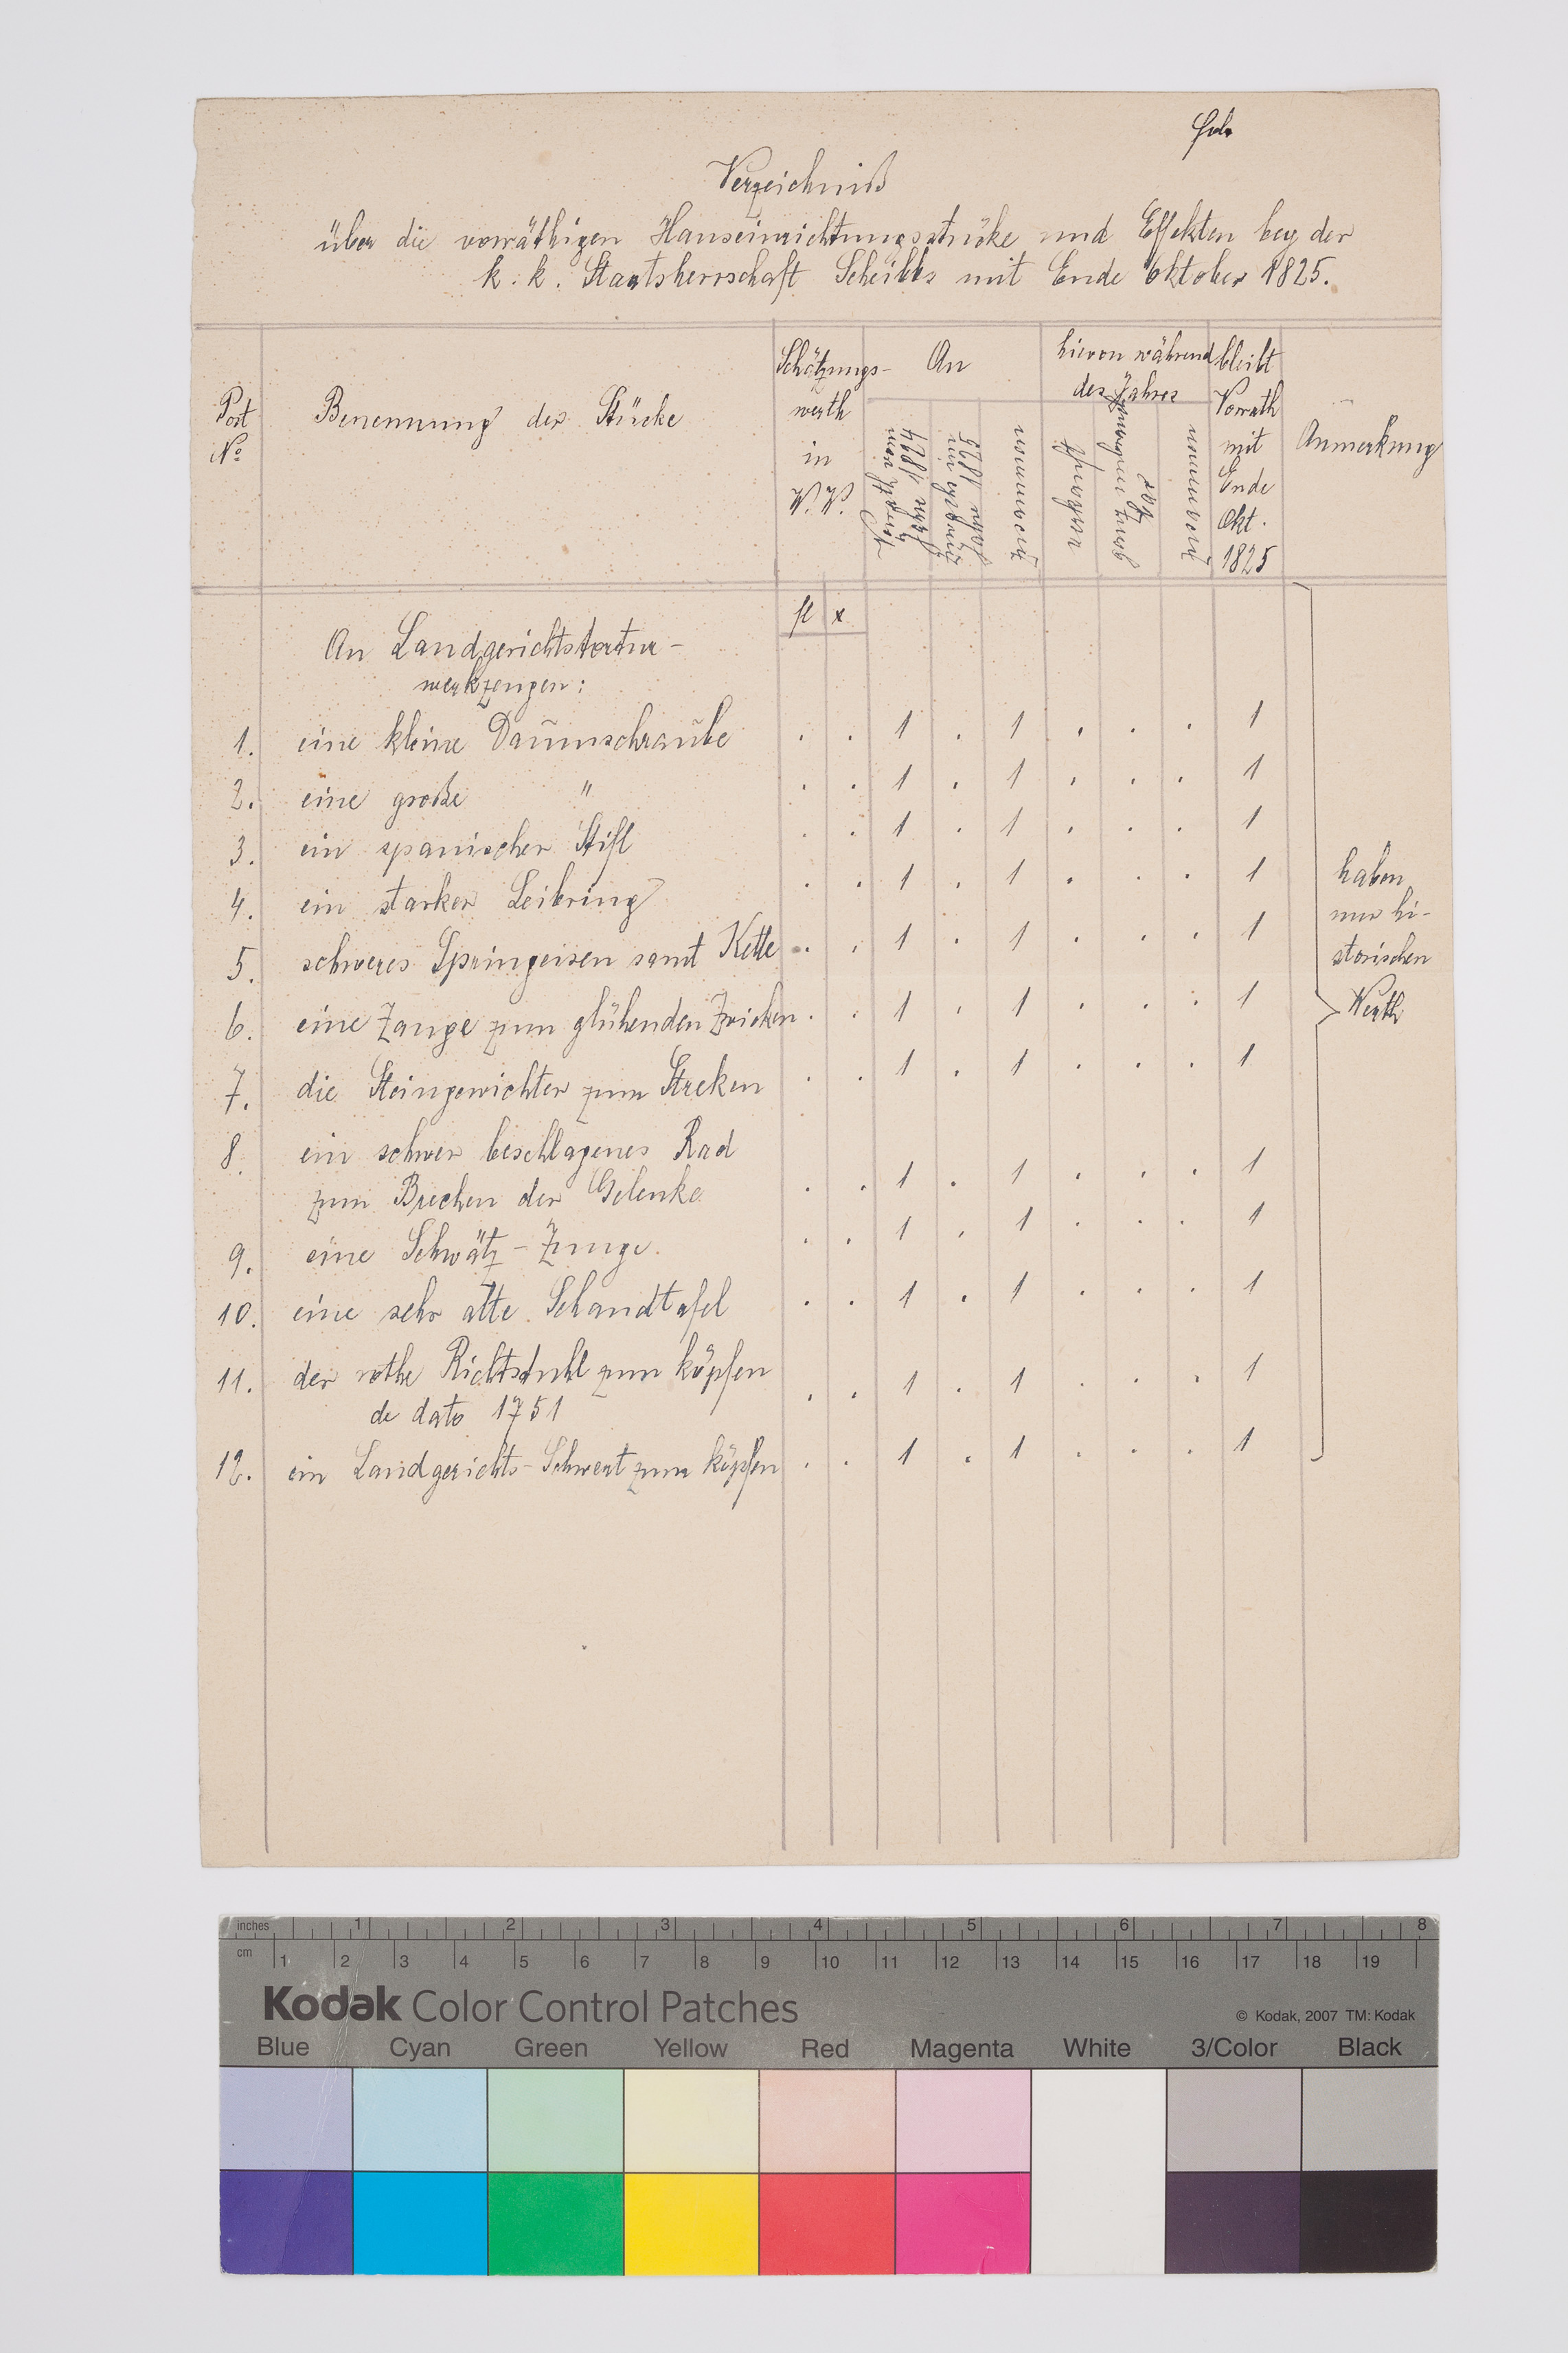 Verzeichniß
über die vorräthigen Hauseinrichtungsstücke und Effekten bey der
k. k. Staatsherrschaft Scheibbs mit Ende Oktober 1825.
Post
No
Benennung der Stücke
Schätzungs-
werth
in
W. W.
An
1824
1825
zusammen
hievon während
des Jahres
verkauft
zusammen
bleibt
Vorrath
mit
Ende
Okt.
1825
Anmerkung
fl x
An Landgerichtstortur-
werkzeugen:
1. eine kleine Daumschraube . . 1 . 1 . . . 1
2. eine große " . . 1 . 1 . . . 1
3. ein spanischer Stifl . . 1 . 1 . . . 1
4. ein starker Leibring . . 1 . 1 . . . 1
5. schweres Springeisen samt Kette . . 1 . 1 . . . 1
6. eine Zange zum glühenden Zwicken . . 1 . 1 . . . 1
7. die Steingewichter zum Streken . . 1 . 1 . . . 1
8. ein schwer beschlagenes Rad
zum Brechen der Gelenke . . 1 . 1 . . . 1
9. eine Schwätz-Zunge. . . 1 . 1 . . . 1
10. eine sehr alte Schandtafel . . 1 . 1 . . . 1
11. der rothe Richtstuhl zum köpfen
de dato 1751 . . 1 . 1 . . . 1
12. ein Landgerichts-Schwert zum köpfen . . 1 . 1 . . . 1
haben
nur hi-
storischen
Werth
inches 1 2 3 4 5 6 7 8
cm 1 2 3 4 5 6 7 8 9 10 11 12 13 14 15 16 17 18 19
Kodak Color Control Patches
© Kodak, 2007 TM: Kodak
Blue Cyan Green Yellow Red Magenta White 3/Color Black